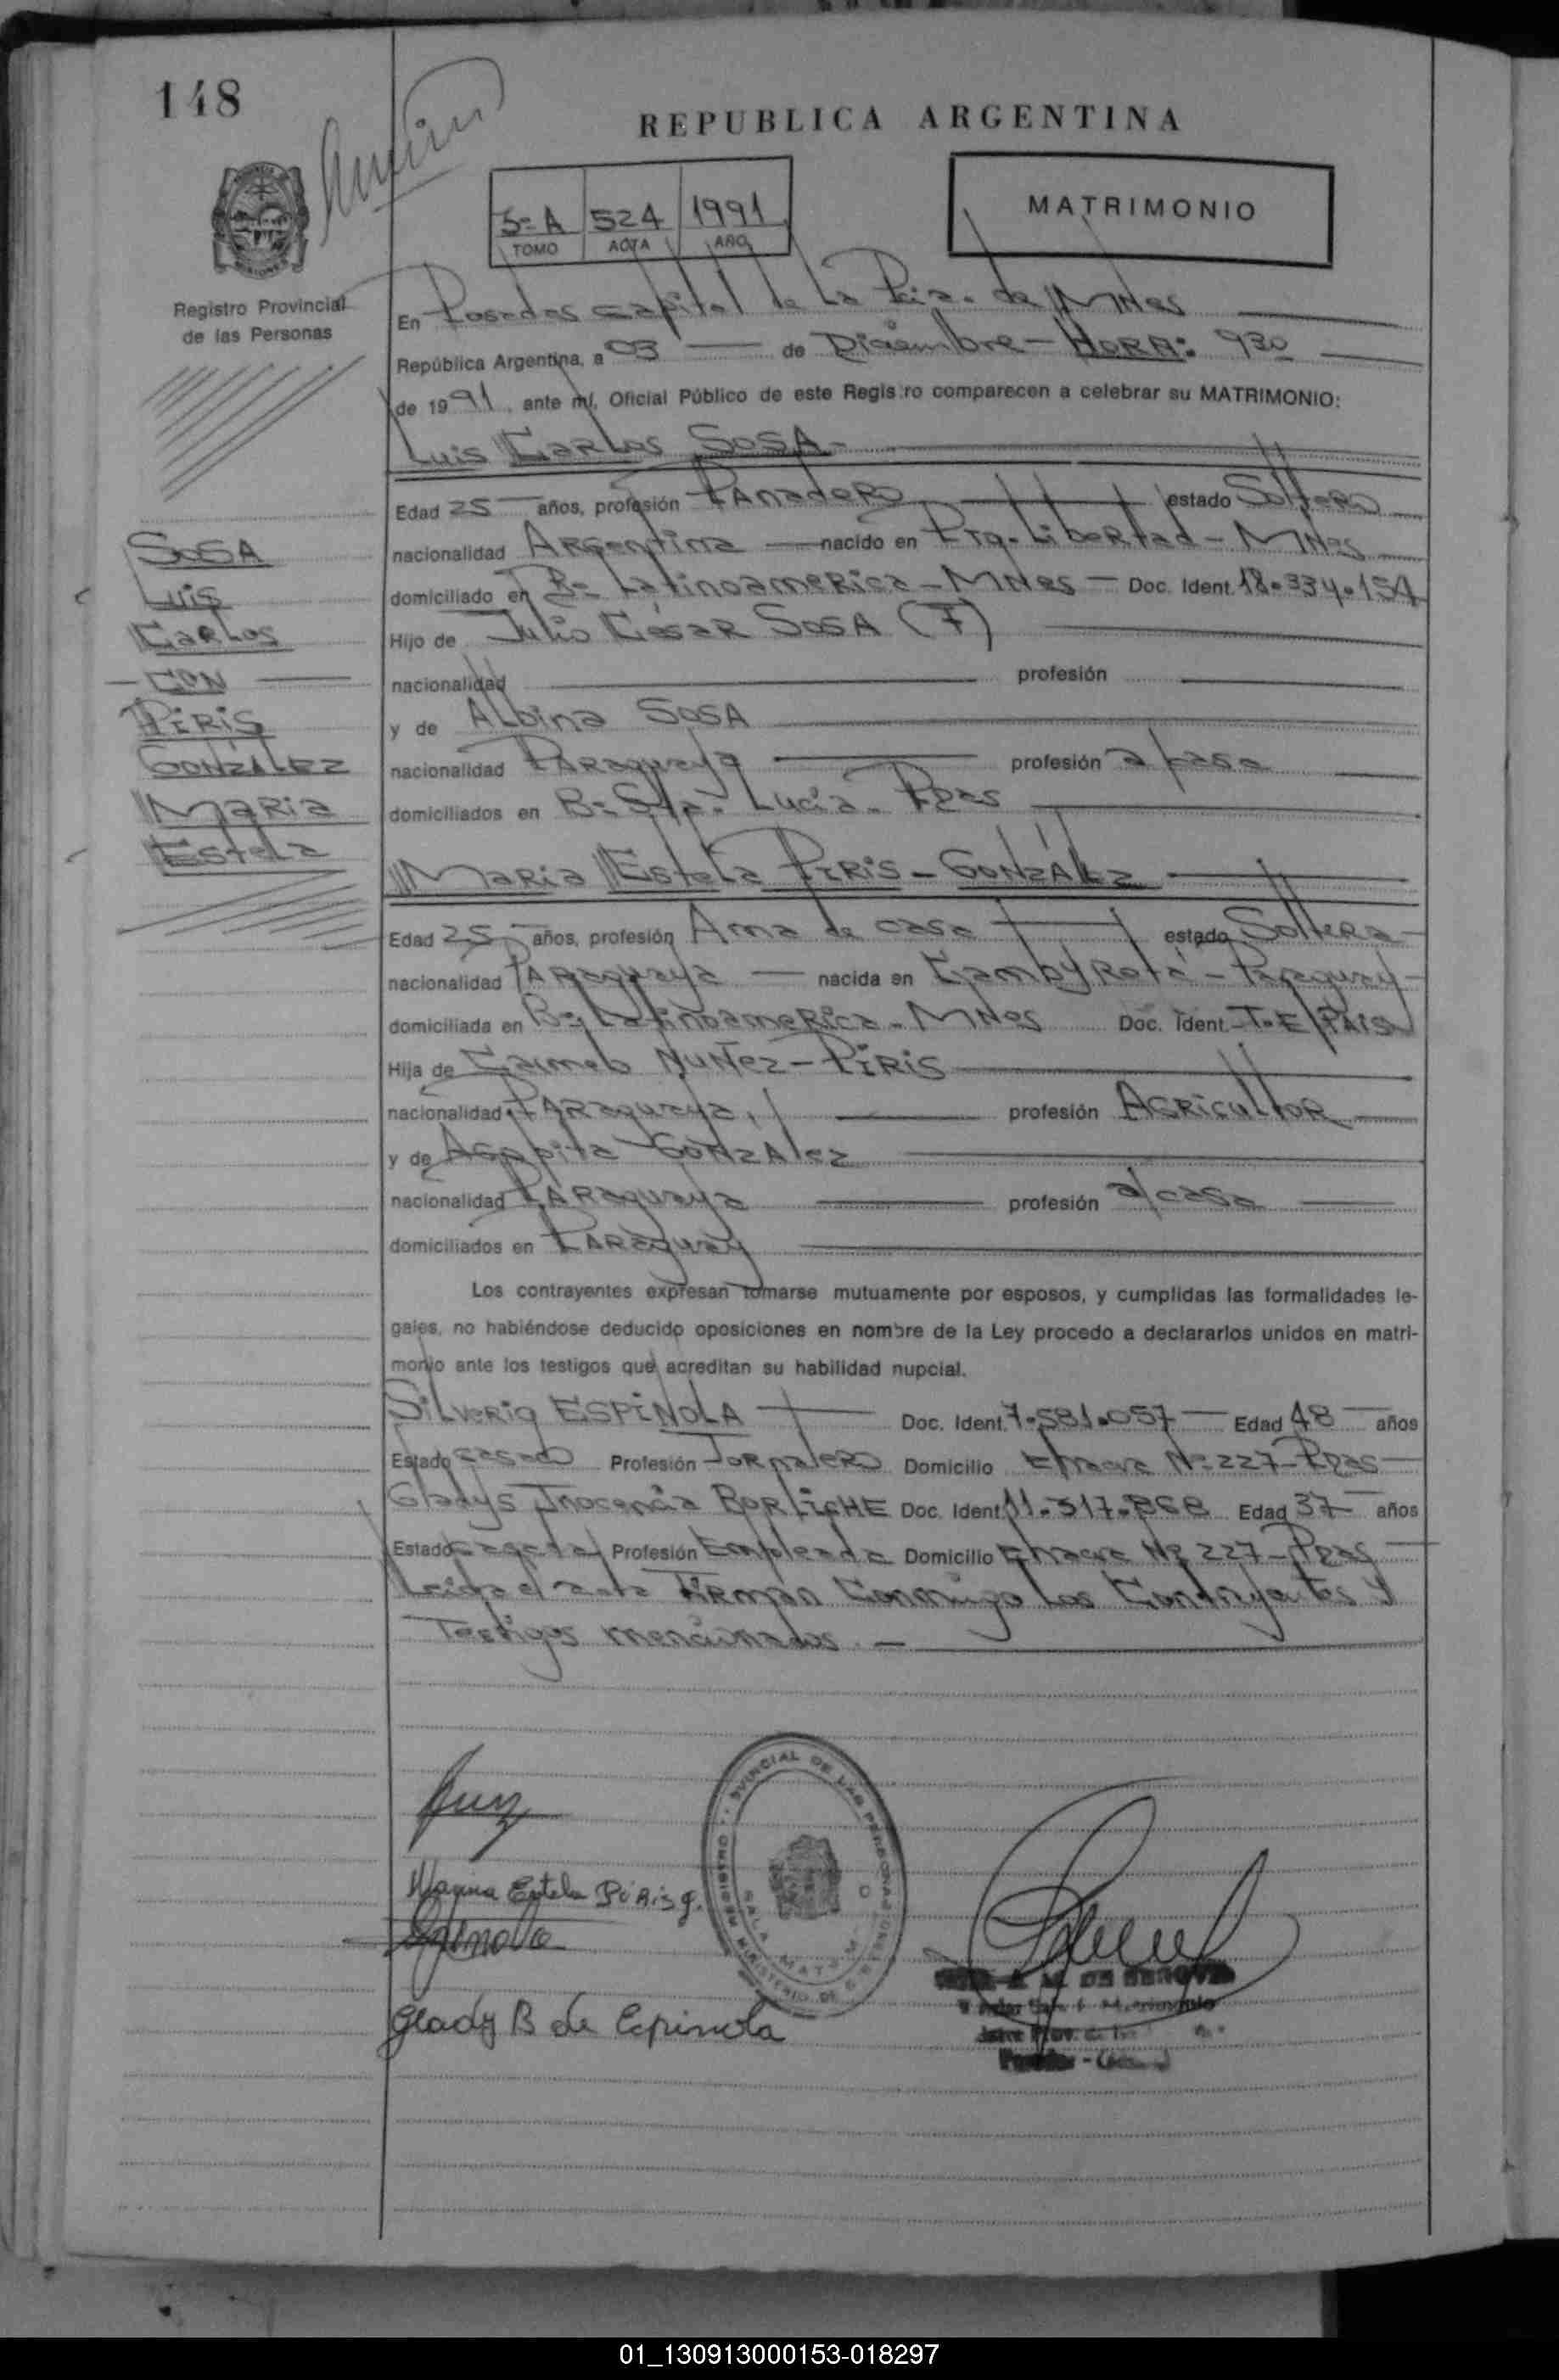 148
REPUBLICA ARGENTINA
5= A 524 1991
TOMO ACTA AÑO
MATRIMONIO
Registro Provincial
de las Personas
En Posadas Capital de La Pcia. de MNes
República Argentina, a 03 de Diciembre - HORA: 930
de 1991, ante mí, Oficial Público de este Registro comparecen a celebrar su MATRIMONIO:
Luis Carlos SOSA-
Edad 25 años, profesión Panadero estado Soltero
nacionalidad Argentina nacido en Pto. Libertad - MNes
domiciliado en B= Latinoamerica - MNes - Doc. Ident. 18.334.154
Hijo de Julio César SOSA (F)
nacionalidad profesión
y de Albina SOSA
nacionalidad Paraguaya profesión a/casa
domiciliados en B= Sta. Lucia - Pdas
Maria Estela PIRIS - GONZÁLEZ
Edad 25 años, profesión Ama de casa estado Soltera
nacionalidad Paraguaya nacida en Cambyretá - Paraguay
domiciliada en B= Latinoamerica - MNes Doc. Ident. T.E/PAIS
Hija de NUÑEZ - PIRIS
nacionalidad Paraguaya profesión Agricultor
y de Agapita GONZALEZ
nacionalidad Paraguaya profesión a/casa
domiciliados en Paraguay
Los contrayentes expresan tomarse mutuamente por esposos, y cumplidas las formalidades le-
gales, no habiéndose deducido oposiciones en nombre de la Ley procedo a declararlos unidos en matri-
monio ante los testigos que acreditan su habilidad nupcial.
Silverio ESPINOLA Doc. Ident. 7.581.057 Edad 48 años
Estado casado Profesión Jornalero Domicilio Chacra N= 227 - Pdas
Gladys Inocencia BORLICHE Doc. Ident. 11.317.868 Edad 37 años
Estado casada Profesión Empleada Domicilio Chacra Nº 227 - Pdas
Leida el acta Firman Conmigo Los Contrayentes y
Testigos mencionados. -
SOSA
Luis
Carlos
- CON
PIRIS
GONZÁLEZ
Maria
Estela
Estela Piris g.
Espinola
Glady B de Espinola
01_130913000153-018297